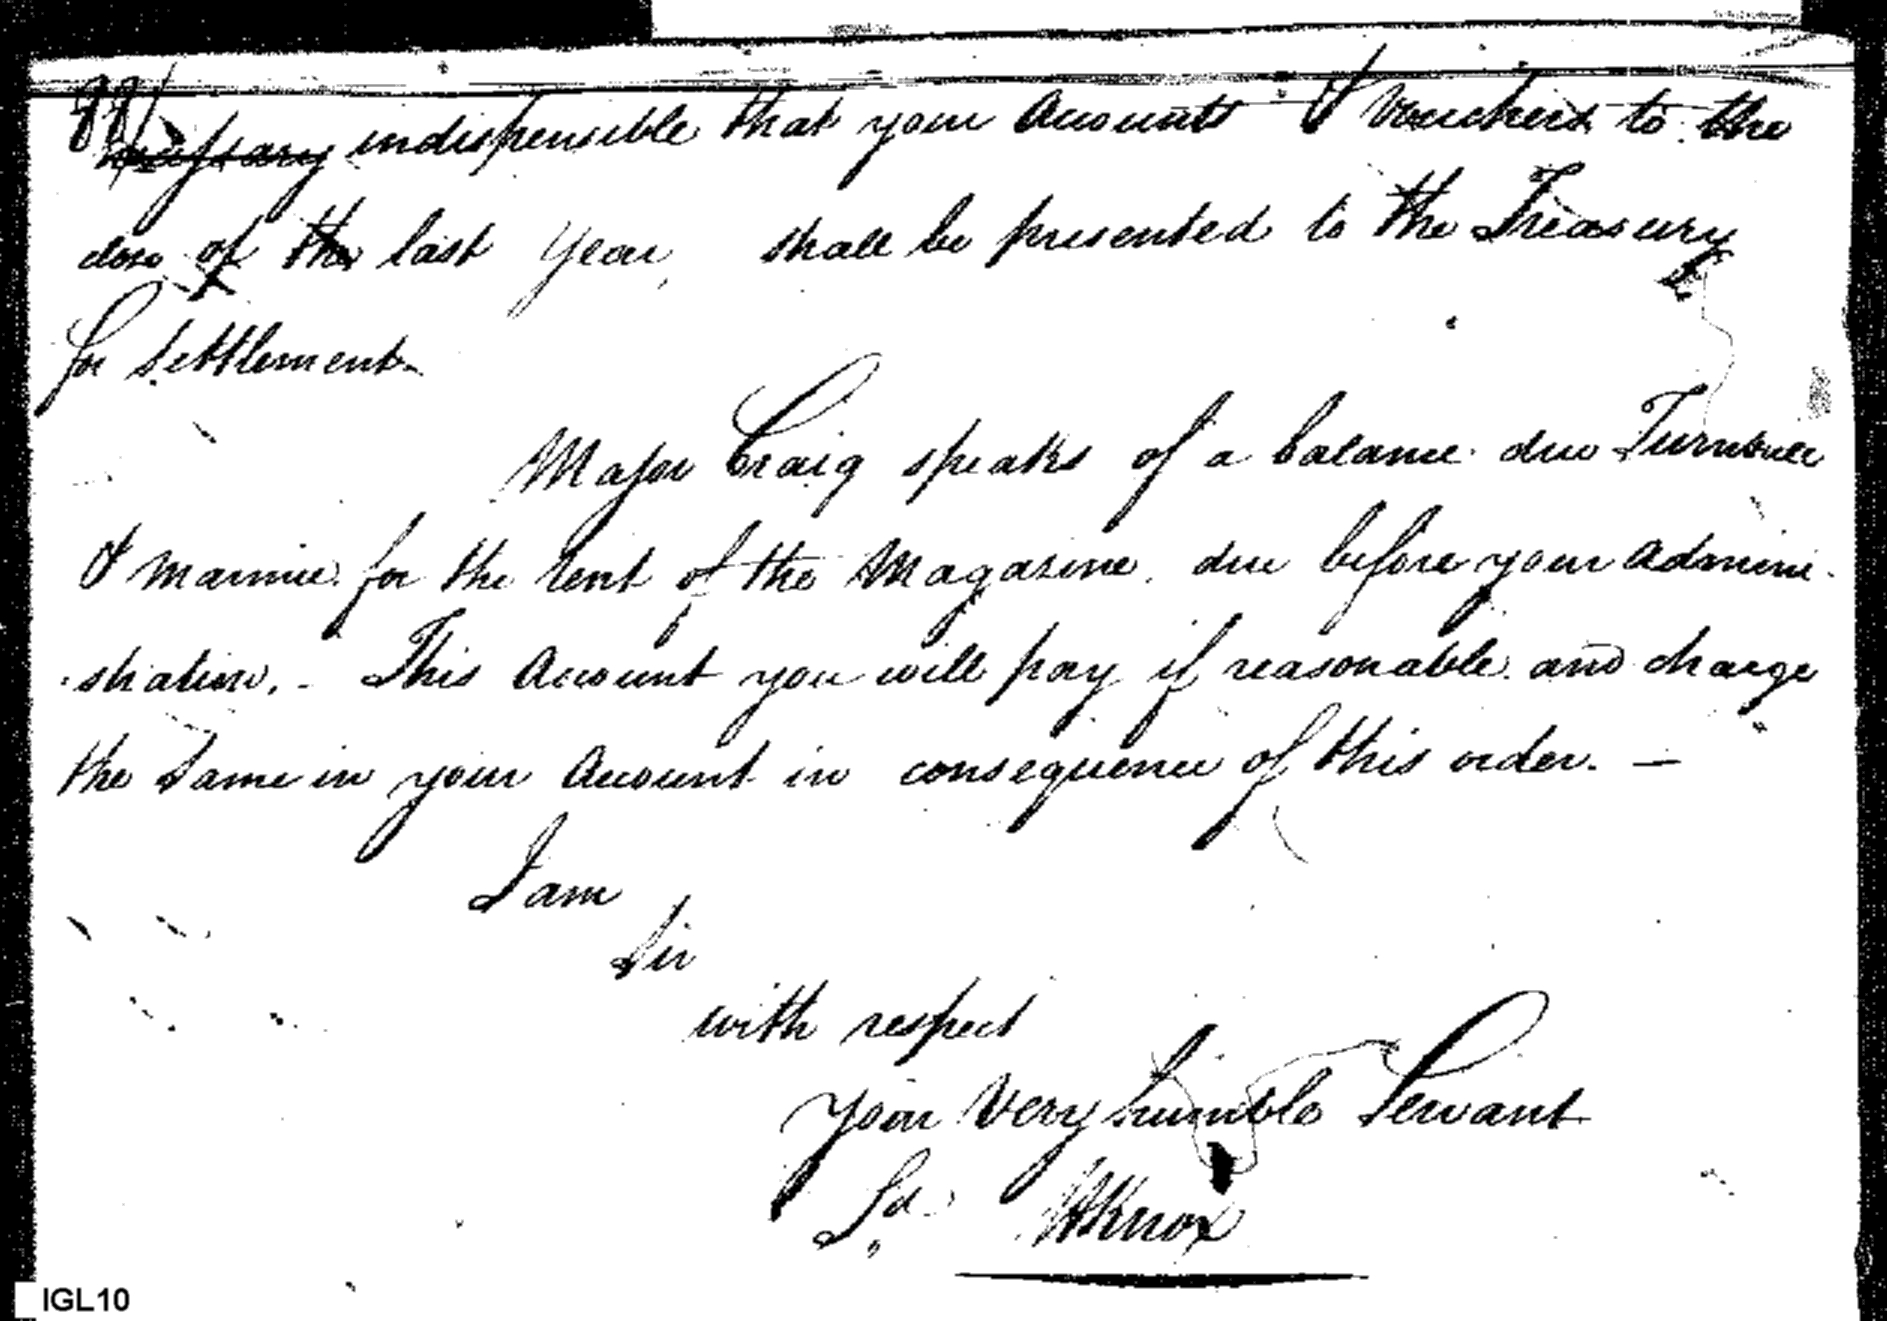 99/
necessary indispensible that your Accounts & Vouchers to the
close of the last Year, shall be presented to the Treasury
for Settlement.
Major Craig speaks of a balance due Turnbull
& Marmie for the rent of the Magazine, due before your Admini-
-stration. - This Account you will pay if reasonable and charge
the Same in your Account in consequence of this order. —
I am
Sir
with respect
your Very humble Servant
Sd. HKnox
IGL10